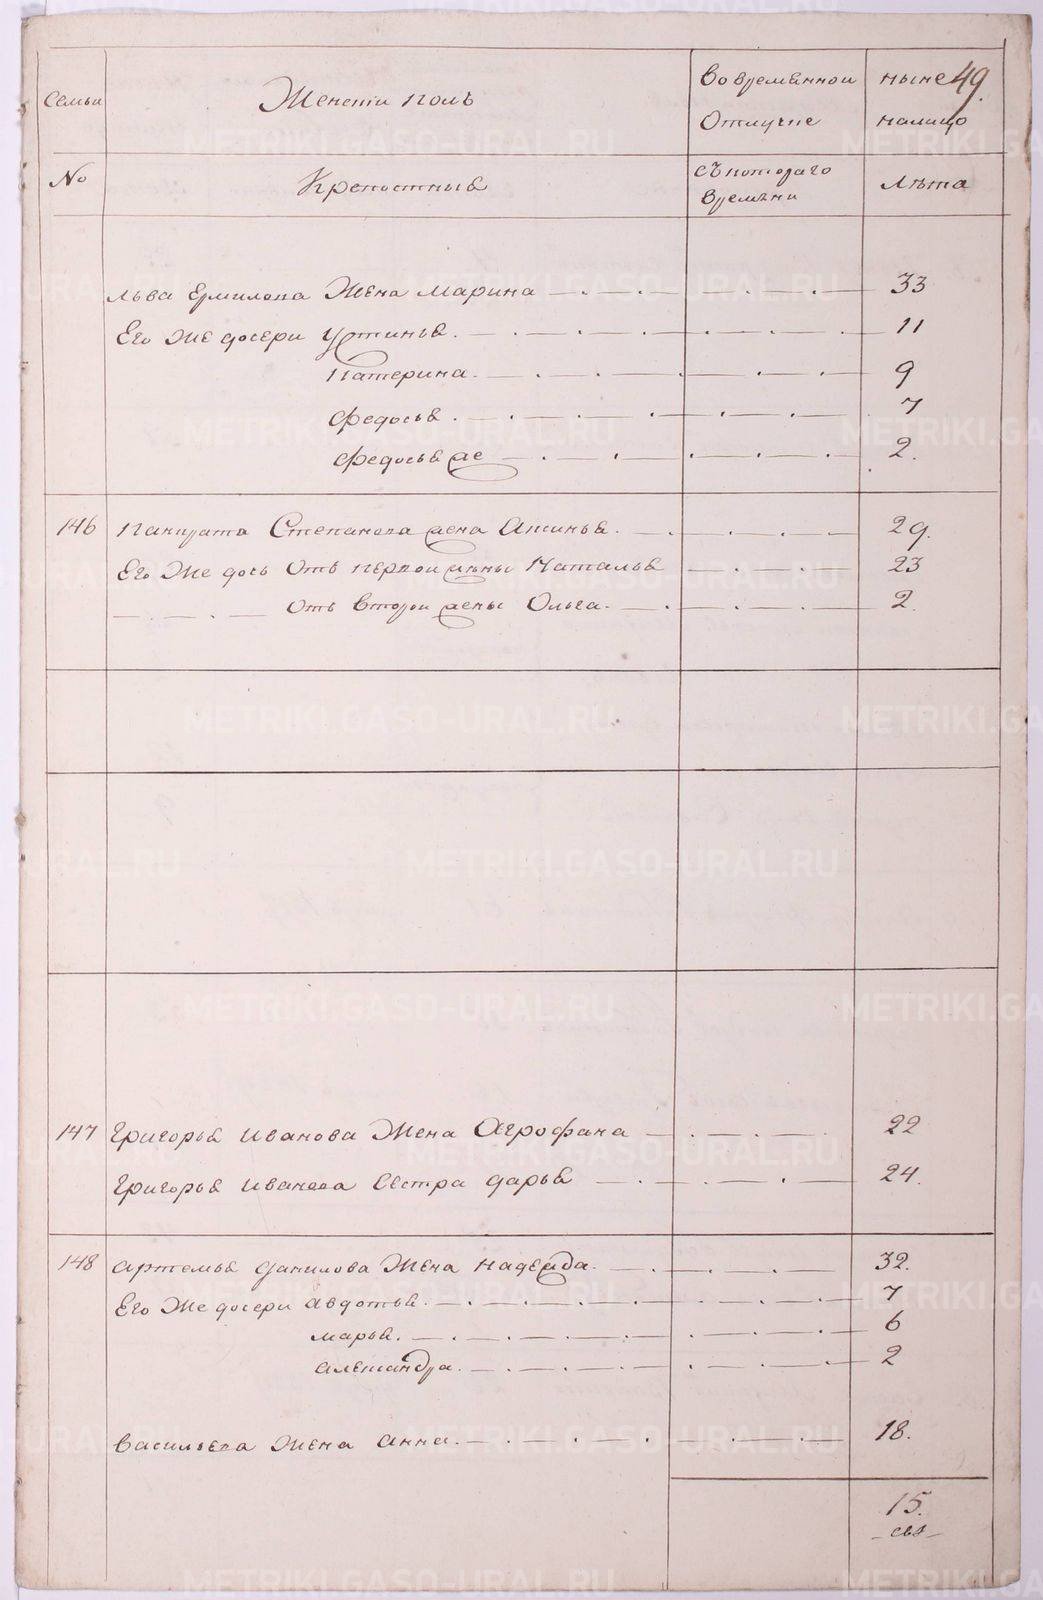 49.
Семьи
Женскiй полъ
Во временной
Отлучке
ныне
налицо
No
Крепостныя
Съ котораго
Времяни
Лѣта
Льва Ермилова Жена Марина 33
Его Же дочери Устинья 11
Катерина 9
Федосья 7
Федосья же 2.
146 Панкрата Степанова жена Аксинья 29.
Его Же дочь Отъ первой жены Наталья 23
Отъ второй жены Ольга 2.
147 Григорья Иванова Жена Агрофена 22
Григорья Иванова Сестра дарья 24.
148 Артемья данилова Жена надежда 32.
Его Же дочери авдотья 7
марья 6
александра 2
Васильева Жена анна 18.
15.
METRIKI.GASO-URAL.RU